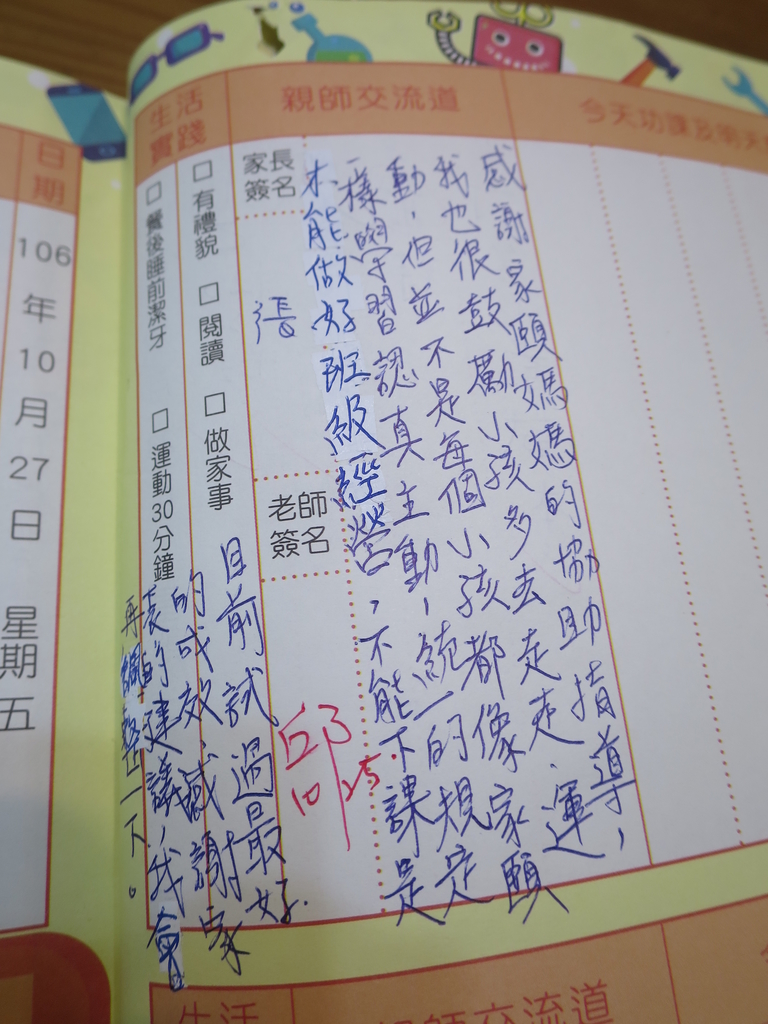 今天功課及明天
親師交流道
生活實踐
日期
106年10月27日 星期五
感謝家頤媽媽的協助指導，
我也很鼓勵小孩多去走走、運
動，但並不是每個小孩都像家頤
一樣學習認真主動，統一的規定
才能做好班級經營，不能下課是
目前試過最好
的成效，感謝家
長的建議，我會
再調整一下。
家長簽名
張
老師簽名
邱
10 25
□ 有禮貌 □ 閱讀 □ 做家事
□ 餐後睡前潔牙 □ 運動30分鐘
親師交流道
生活